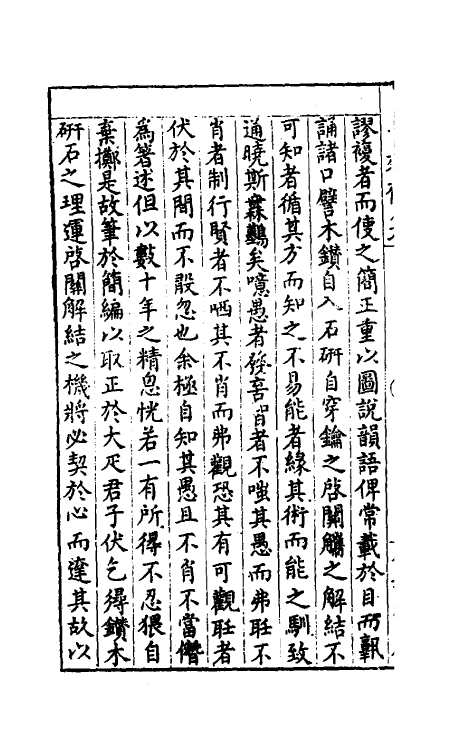 謬複者而使之簡正重以圖說韻語俾常載於目而輒
誦諸口譬木鑽自入石硏自穿鑰之啓關觿之解結不
可知者循其方而知之不易能者緣其術而能之馴致
通曉斯 矣噫愚者發言賢者不嗤其愚而弗聽不
肖者制行賢者不哂其不肖而弗觀恐其有可觀聽者
伏於其間而不敢忽也余極自知其愚且不肖不當僭
為著述但以數十年之精思恍若一有所得不忍猥自
棄擲是故筆於簡編以取正於大疋君子伏乞得鑽木
硏石之理運啓關解結之機將必契於心而達其故以